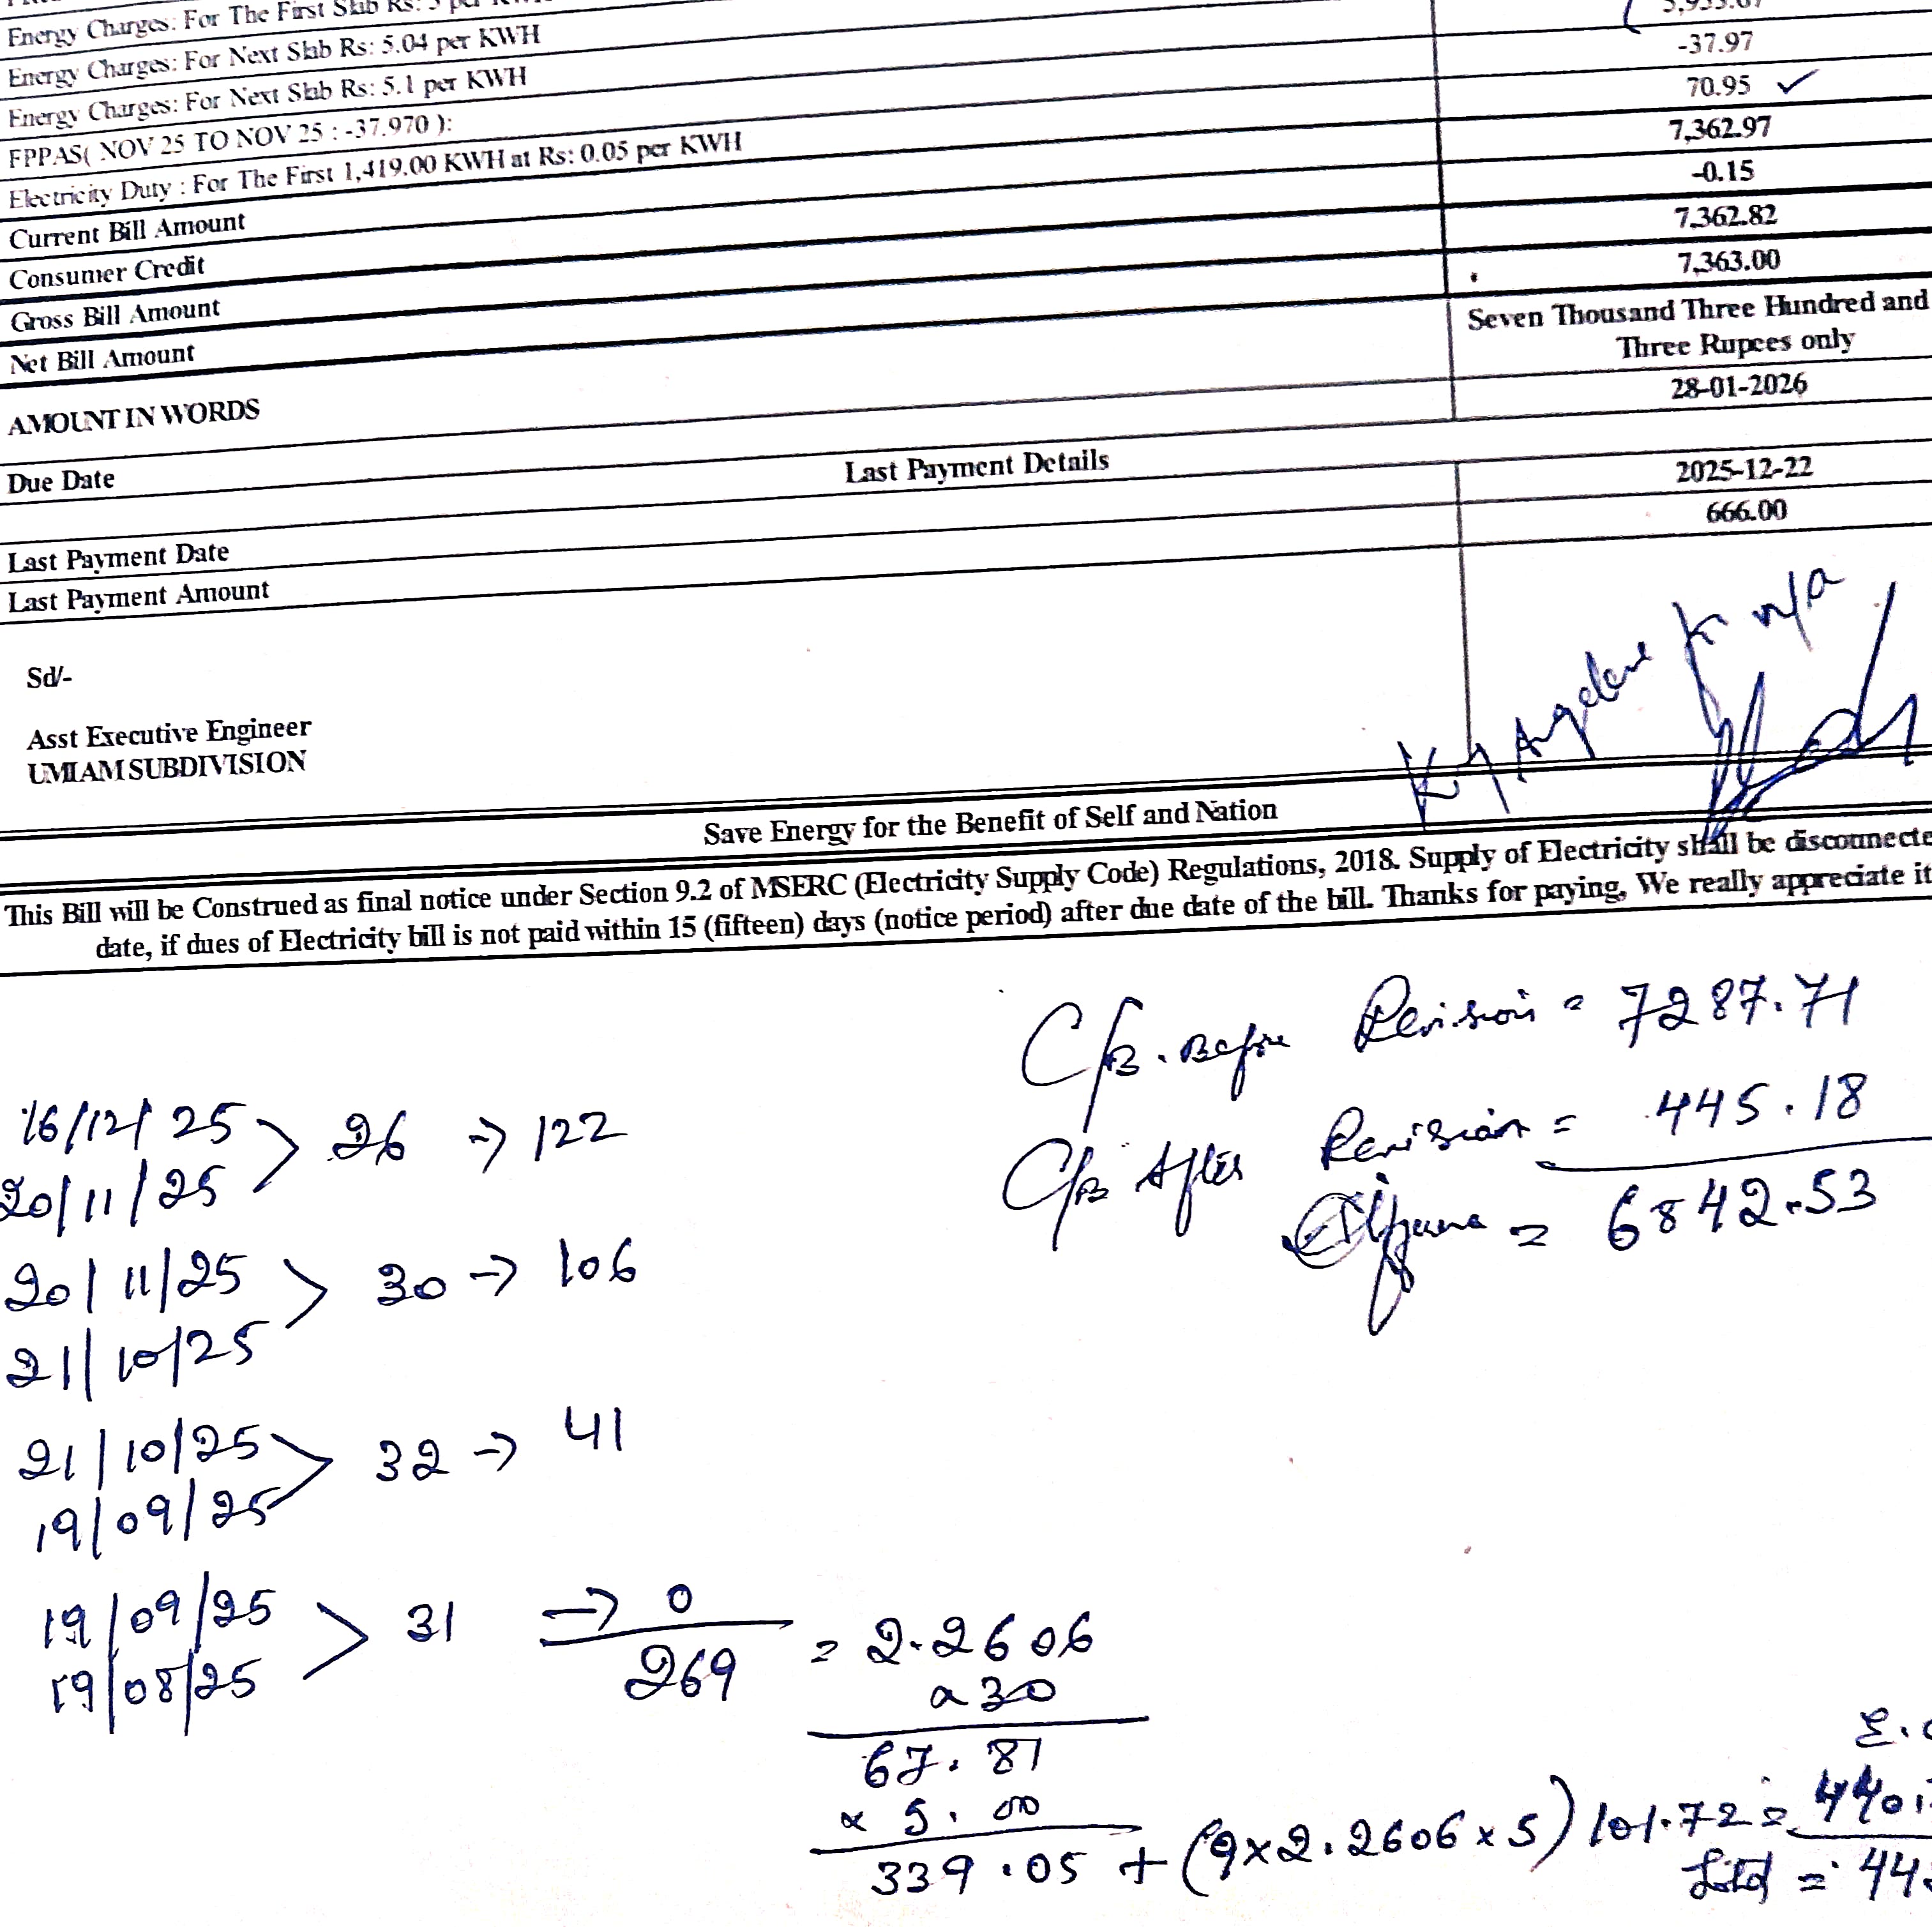 Energy Charges: For The First Slab Rs: 5 per
Energy Charges: For Next Slab Rs: 5.04 per KWH
Energy Charges: For Next Slab Rs: 5.1 per KWH
FPPAS( NOV 25 TO NOV 25 : -37.970 ): -37.97
Electricity Duty : For The First 1,419.00 KWH at Rs: 0.05 per KWH 70.95 ✓
Current Bill Amount 7,362.97
Consumer Credit -0.15
Gross Bill Amount 7,362.82
Net Bill Amount 7,363.00
AMOUNT IN WORDS Seven Thousand Three Hundred and
Three Rupees only
Due Date 28-01-2026
Last Payment Details
Last Payment Date 2025-12-22
Last Payment Amount 666.00
Sd/-
Asst Executive Engineer
UMIAM SUBDIVISION
Save Energy for the Benefit of Self and Nation
This Bill will be Construed as final notice under Section 9.2 of MSERC (Electricity Supply Code) Regulations, 2018. Supply of Electricity shall be disconnecte
date, if dues of Electricity bill is not paid within 15 (fifteen) days (notice period) after due date of the bill. Thanks for paying, We really appreciate it
C/B. Before Revision = 7287.71
C/B After Revision = 445.18
= 6842.53
16/12/25 > 26 → 122
20/11/25
20/11/25 > 30 → 106
21/10/25
21/10/25 > 32 → 41
19/09/25
19/09/25 > 31 → 0
19/08/25
269 = 2.2606
x 30
67.81
x 5.00
339.05 + (9x2.2606x5) 101.72 =